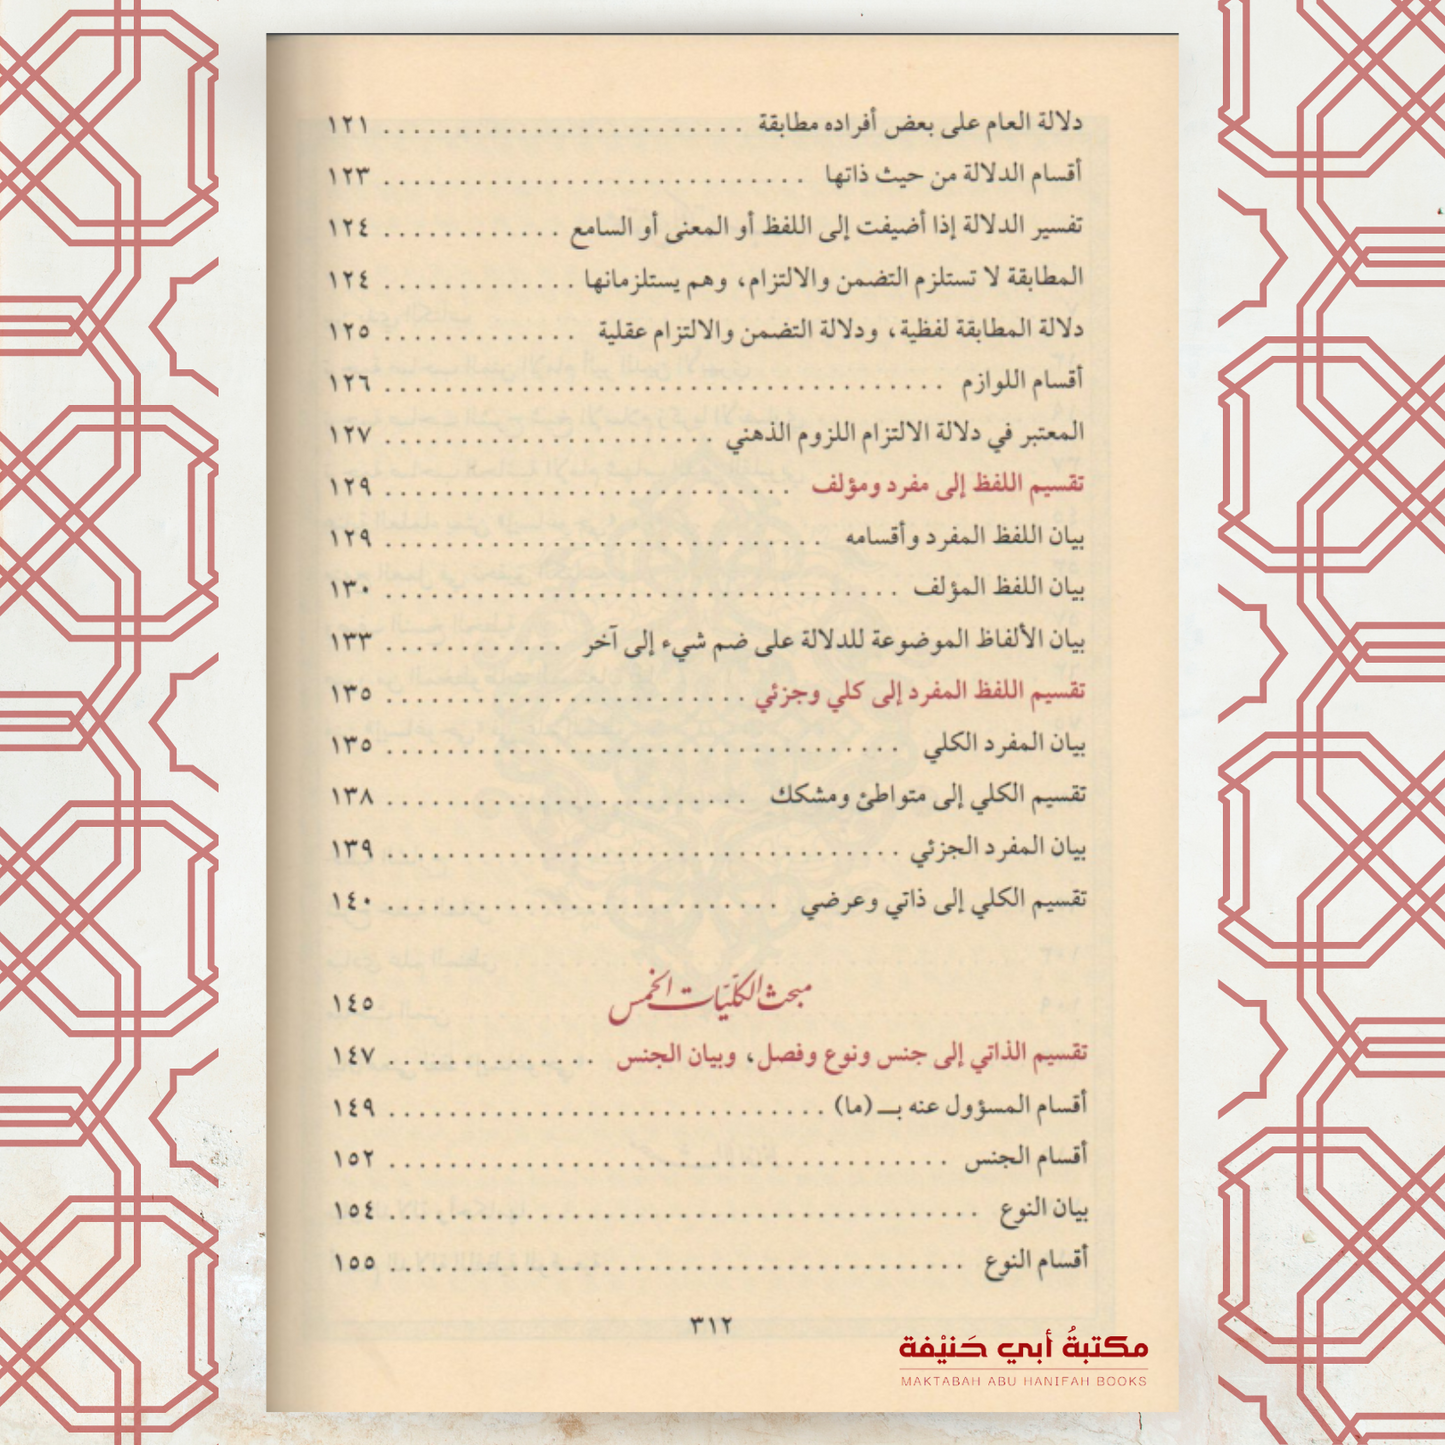 دلالة العام على بعض أفراده مطابقة ........................ ١٢١
أقسام الدلالة من حيث ذاتها ............................ ١٢٣
تفسير الدلالة إذا أضيفت إلى اللفظ أو المعنى أو السامع ............ ١٢٤
المطابقة لا تستلزم التضمن والالتزام، وهم يستلزمانها ............. ١٢٤
دلالة المطابقة لفظية، ودلالة التضمن والالتزام عقلية ............. ١٢٥
أقسام اللوازم ..................................... ١٢٦
المعتبر في دلالة الالتزام اللزوم الذهني ...................... ١٢٧
تقسيم اللفظ إلى مفرد ومؤلف ........................... ١٢٩
بيان اللفظ المفرد وأقسامه ............................. ١٢٩
بيان اللفظ المؤلف .................................. ١٣٠
بيان الألفاظ الموضوعة للدلالة على ضم شيء إلى آخر ............ ١٣٣
تقسيم اللفظ المفرد إلى كلي وجزئي ........................ ١٣٥
بيان المفرد الكلي .................................. ١٣٥
تقسيم الكلي إلى متواطئ ومشكك ........................ ١٣٨
بيان المفرد الجزئي .................................. ١٣٩
تقسيم الكلي إلى ذاتي وعرضي .......................... ١٤٠
مبحث الكليّات الخمس ١٤٥
تقسيم الذاتي إلى جنس ونوع وفصل، وبيان الجنس .............. ١٤٧
أقسام المسؤول عنه بـ (ما) ............................. ١٤٩
أقسام الجنس ..................................... ١٥٢
بيان النوع ....................................... ١٥٤
أقسام النوع ...................................... ١٥٥
٣١٢
مكتبةُ أبي حَنيْفة
MAKTABAH ABU HANIFAH BOOKS